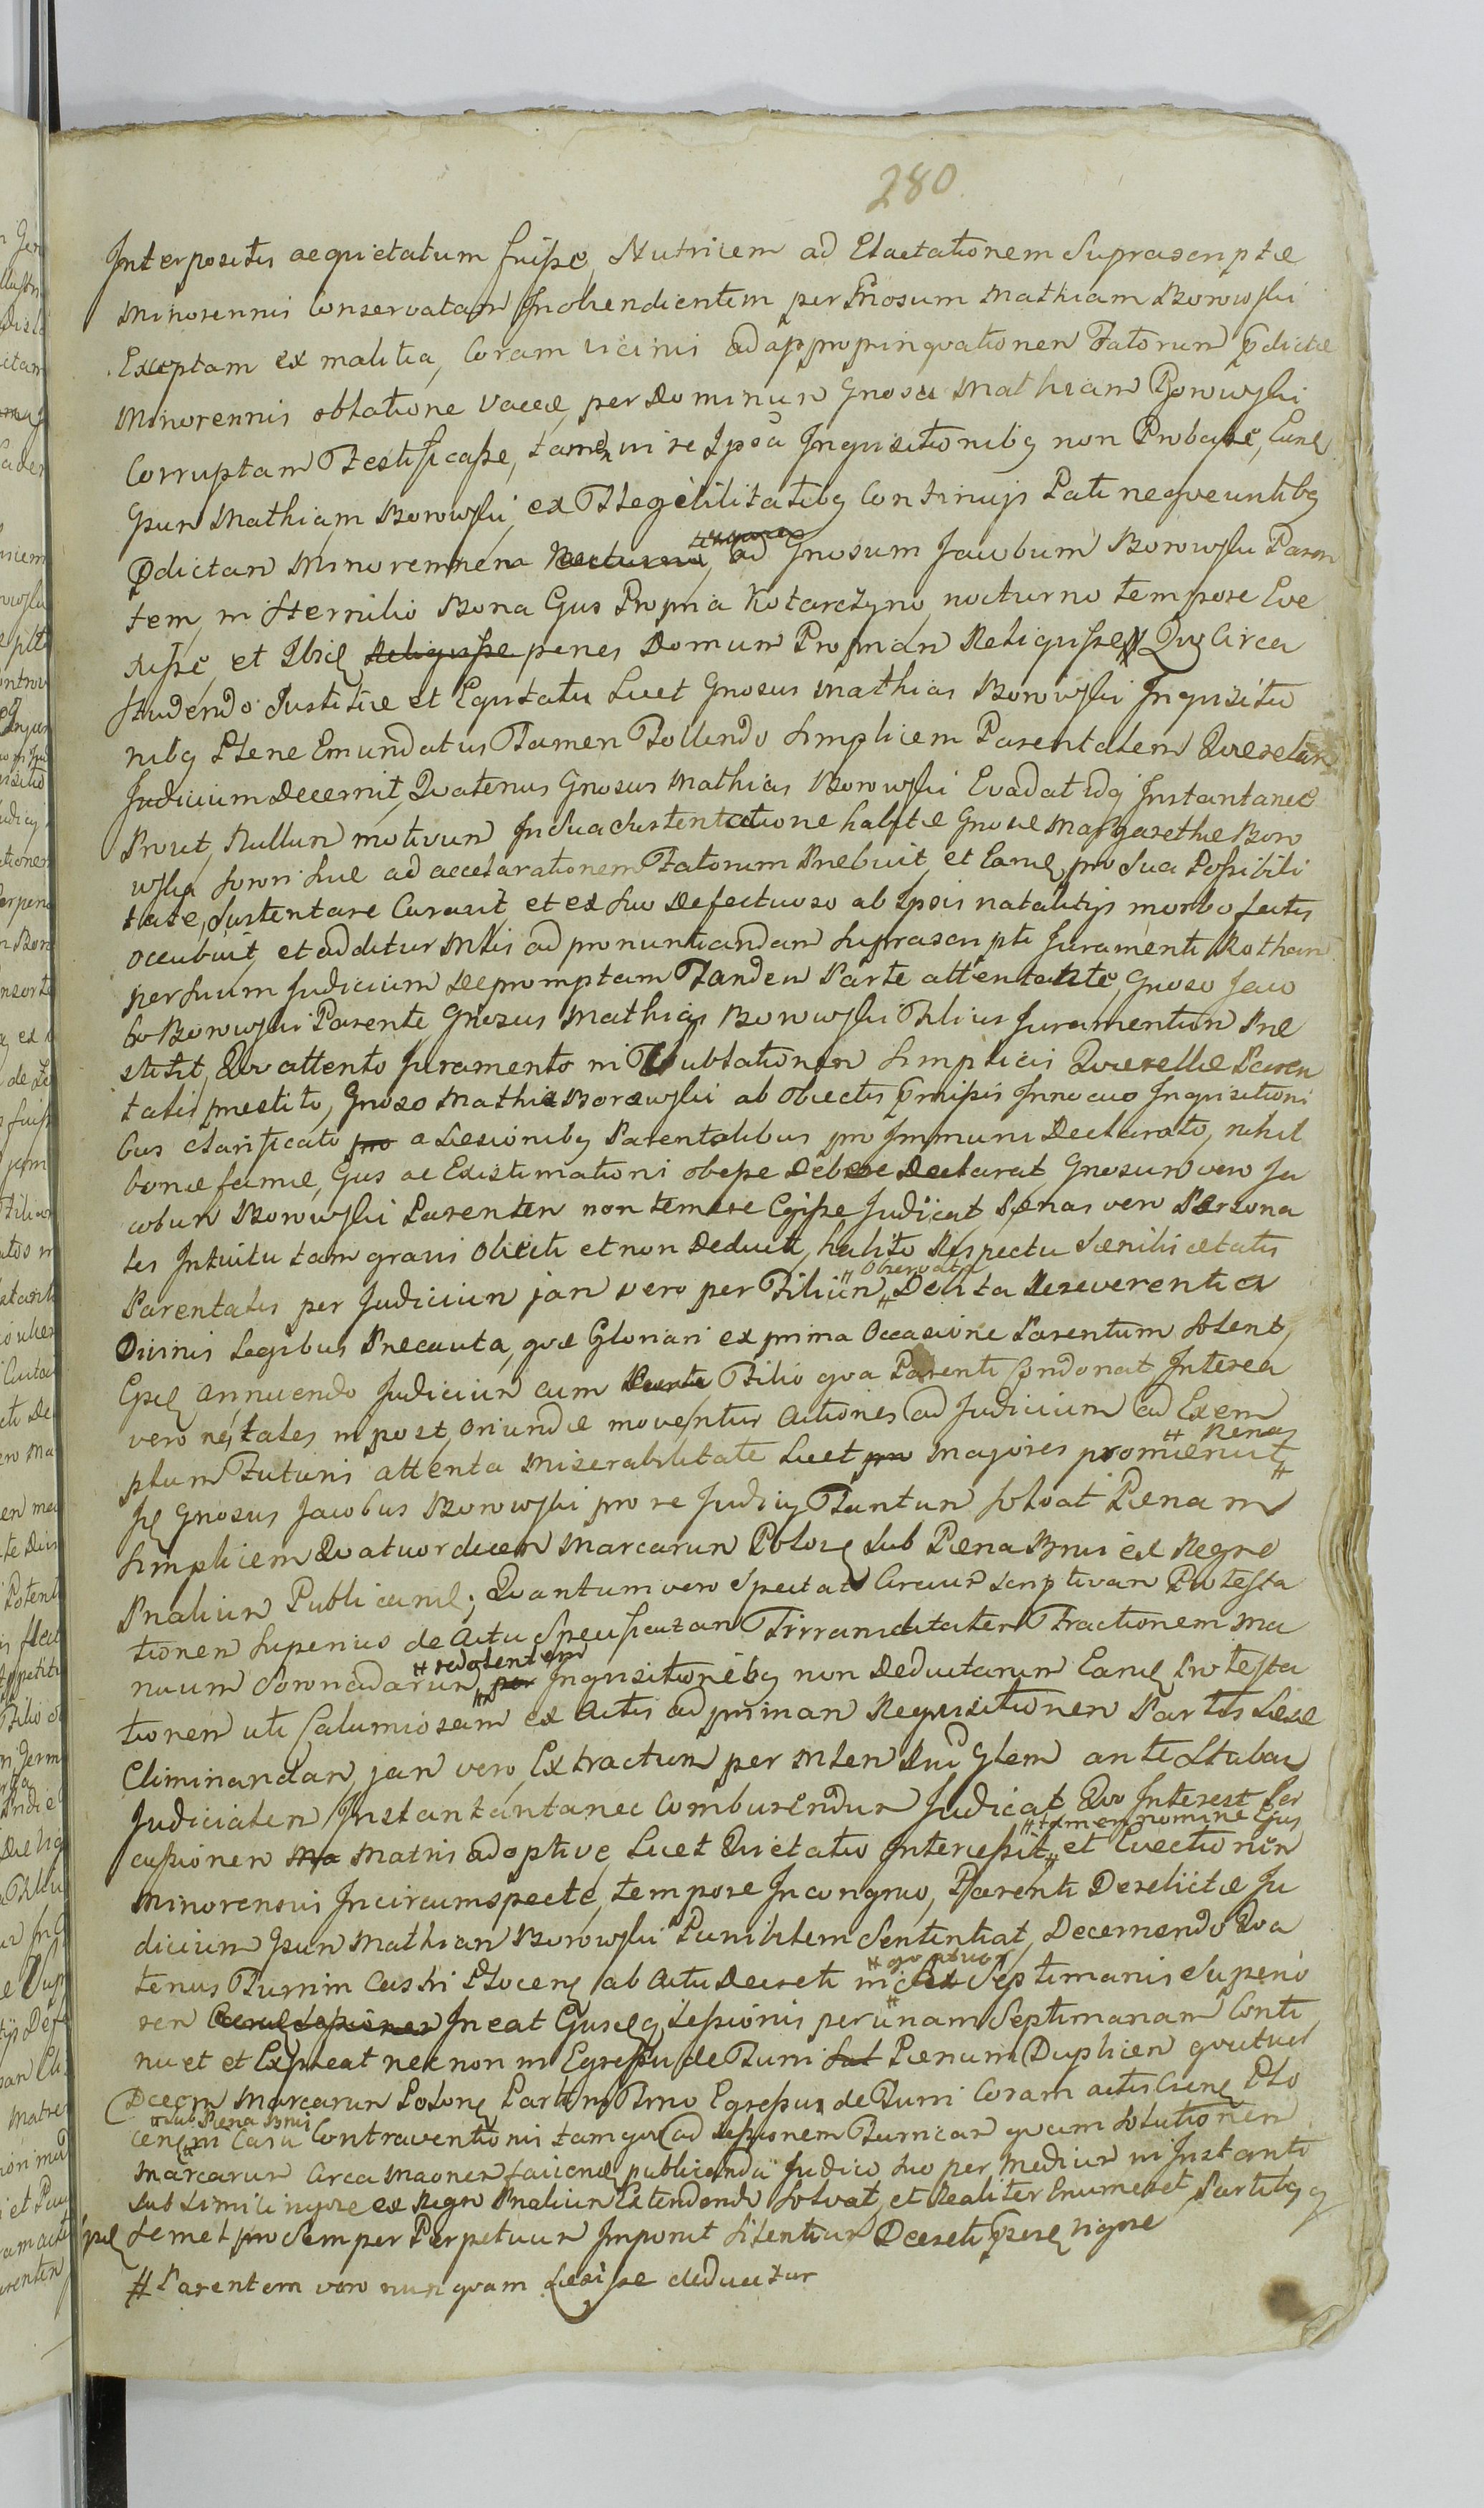 280
Interpositis aequietatum fuisse, Nutricem ad Elactationem Suprascriptæ
Minorennis Conservatam Inobendientem per Gnosum Mathiam Borowski
Exceptam ex malitia, Coram vicinis ad appropinqvationem Fatorum Pdictæ
Minorennis oblatione Vaccæ, per Dominum Gnosu Mathiam Borowski
Corruptam Testificasse, tamen in re Ipsa Inqvisitionibq non Probasse, Eunq
Gsum Mathiam Borowski ex Illegibilitatibq Continujs Pati neqveuntibq
Pdictam Minorennem Nocturno tempore, ad Gnosum Jacobum Borowski Paren
tem, in Sternilio Bona Ejus Propria Kotarczyno, nocturno tempore Eve
xisse, et Ibiq Reliqvisse penes Domum Propriam Reliqvisse # Qvo Circa
Studendo Justitiæ et Eqvitatu Licet Gnosus Mathias Borowski Inqvisitio
nibq Plene Emundatus Tamen Tollendo Simplicem Parentalem Qverelam
Judicium Decernit, Qvatenus Gnosus Mathias Borowski Evadat Idq Instantanee
Prout, Nullum motivum In Sua Sustentatione habitæ Gnosæ Margarethæ Boro
wska Sorori Suæ ad accelarationem Fatorum Præbuit, et Eamq pro Sua Possibili
tate, Sustentare Curavit, et ex Suo Defectuoso ab Ipsis natalitijs morbo fectis
occubuit, et additur Mlis ad pronuntiandam Suprascripti Juramenti Rotham
per Suum Judicium Depromptam Tandem Parte attentante, Gnoso Jaco
bo Borowski Parente Gnosus Mathias Borowski Filius Juramentum Præ
stitit, Qvo attento Juramento in Sublationem Simplicis Qverellæ Paren
talis præstito, Gnoso Mathia Borowski ab Obiectis Præmissis Innocuo Inqvisitioni
bus clarificato pro a Læsionibq Parentalibus pro Immuni Declarato, nihil
bonæ famæ, Ejus ac Existimationi obesse Debere Declarat, Gnosum vero Ja
cobum Borowski Parentem non temere Egisse Judicat, Pænas vero Persona
les Intuitu tam gravis Obiecti et non Deducti, habito Respectu Sænilis ætatis
# Observata
Parentalis per Judicium jam vero per Filium # Debita Reverentia
Divinis Legibus Præcauta, qvæ Gloriari ex prima Occasione Parentum Solent,
Ejseq annuendo Judicium cum Filio qva Parenti Condonat, Interea
vero ne, tales in post, oriundæ moventur Actiones ad Judicium ad Exem
# Penas
plum Futuri attenta Miserabilitate Licet pro majores promeruit #
Is Gnosus Jacobus Borowski pro re Judicij Tantum Solvat Pænam
Simplicem Qvatuordecem Marcarum Polon Sub Pæna Bnis ex Regno
Pnalium Publicanæ; Qvantum vero Spectat Circumscriptivam Protesta
tionem Superius de Actu Specificatam Tirranditatem Fractionem Ma
# redolentem
nuum Sonnadarum, # per Inqvisitionibq non Deductarum Eamq Protesta
tionem uti Calumiosam ex Actis ad primam Reqvisitionem Partis Læsæ
Eliminandam, jam vero Extractum per Mlem Jud Glem ante Stubam
Judicialem Instantantanee Comburendum Judicat Qvo Interest Per
# tamen nomine Ejus
cussionem Ma Matris adoptivæ Licet Qvietatio Intercessit, # et Evectionem
Minorennis Incircumspecte, tempore Incongruo, Parenti Derelictæ Ju
dicium Gsum Mathiam Borowski Punibilem Sententiat, Decernendo Qva
# qvatuor
tenus Turrim Castri Plocens ab Actu Decreti in # Sex Septimanis Superio
rem Ineat Ejusq Sessionis per unam Septimanam Conti
nuet et Expleat nec non in Egressu de Turri Pænam Duplicem qvatuor
Decem Marcarum Polon Parti in Pmo Egressu de Turri Coram actis Cren Plo
# sub Pæna Bnis
cen # in Casu Contraventionis tam qvo ad Sessionem Turricam qvam Solutionem
Marcarum publicanda Judicio Suo per Medium in Instanti
Sub Simili rigore ex Regno Pnalium Extendendo Solvat, et Realiter Enumeret, Partibq q
ipsq Semet pro Semper Perpetuum Imponit Silentium Decreti Pntis vigore
# Parentem vero nunqvam Læsisse deducitur